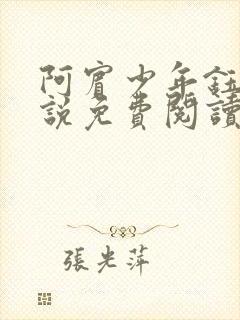 阿賓少年鈺
説免費閱讀
張光萍